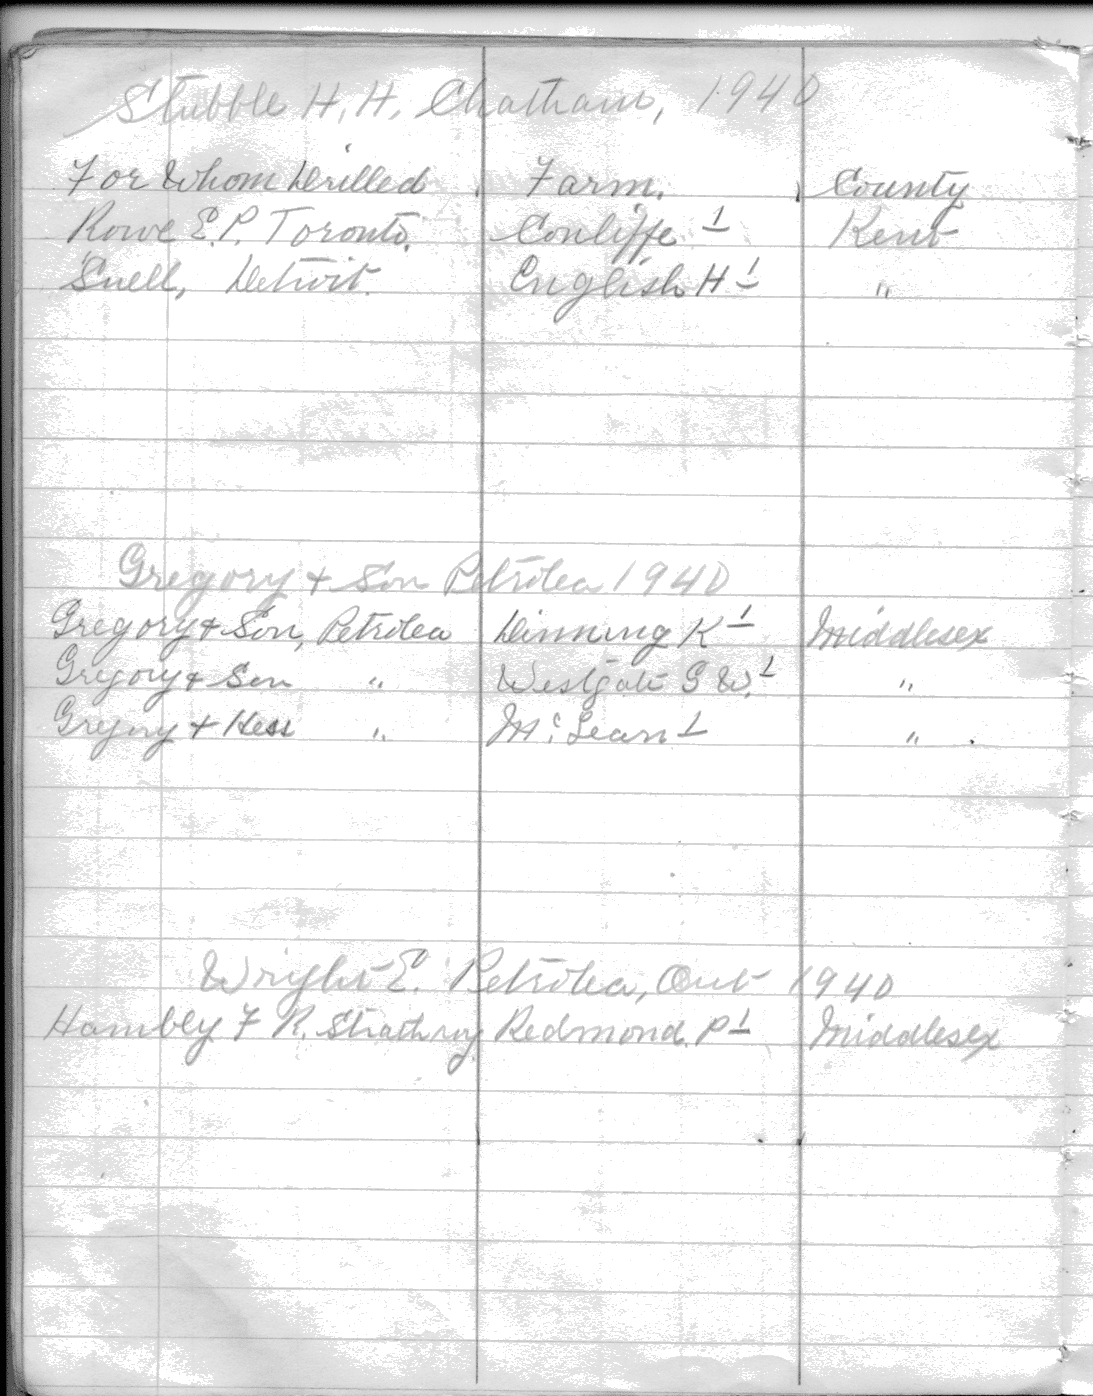 Stubble H. H. Chatham, 1940
For Whom Drilled Farm. County
Rowe E. P. Toronto. Conliffe 1 Kent
Snell, Detroit. English H 1 "
Gregory + Son Petrolea 1940
Gregory + Son, Petrolea Dinning K 1 Middlesex
Gregory + Son " Westgate G W. 1 "
Gregory + Hess " Mc Lean 1 "
Wright E. Petrolea, Ont 1940
Hambly F R. Strathroy Redmond. P 1 Middlesex